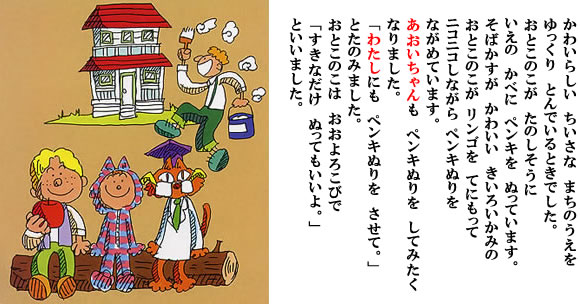 かわいらしい ちいさな まちのうえを
ゆっくり とんでいるときでした。
おとこのこが たのしそうに
いえの かべに ペンキを ぬっています。
そばかすが かわいい きいろいかみの
おとこのこが リンゴを てにもって
ニコニコしながら ペンキぬりを
ながめています。
あおいちゃんも ペンキぬりを してみたく
なりました。
「わたしにも ペンキぬりを させて。」
とたのみました。
おとこのこは おおよろこびで
「すきなだけ ぬってもいいよ。」
といいました。